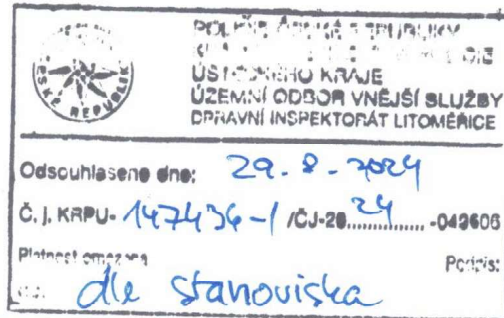 POLICIE ČESKÉ REPUBLIKY
ÚSTECKÉHO KRAJE
ÚZEMNÍ ODBOR VNĚJŠÍ SLUŽBY
DPRAVNÍ INSPEKTORÁT LITOMĚŘICE
REPUBL
Odsouhlaseno dne: 29. 8. 2024
Č. J. KRPU- 147436-1 /ČJ-20 24 -040606
Platnost omezena Podpis:
dle stanoviska